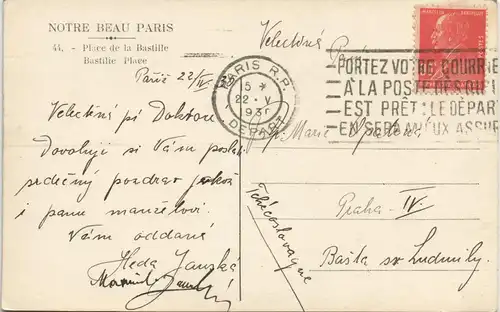 NOTRE BEAU PARIS
44. - Place de la Bastille
Bastille Place
Paříž 22/IV
Velectěná pí Doktorou
Dovoluji si Vám poslat
srdečný pozdrav jakož
i panu manželovi.
Vám oddaná
Heda Janská
PARIS R.P.
15 *
22 · V
DEPART
PORTEZ VOTRE COURRIE
A LA POSTE DES QU'I
EST PRÊT: LE DÉPAR
EN SERA MIEUX ASSUR
Velectěná Paní
Marie
Praha - IV.
Bašta sv Ludmily.
Tchécoslovaquie